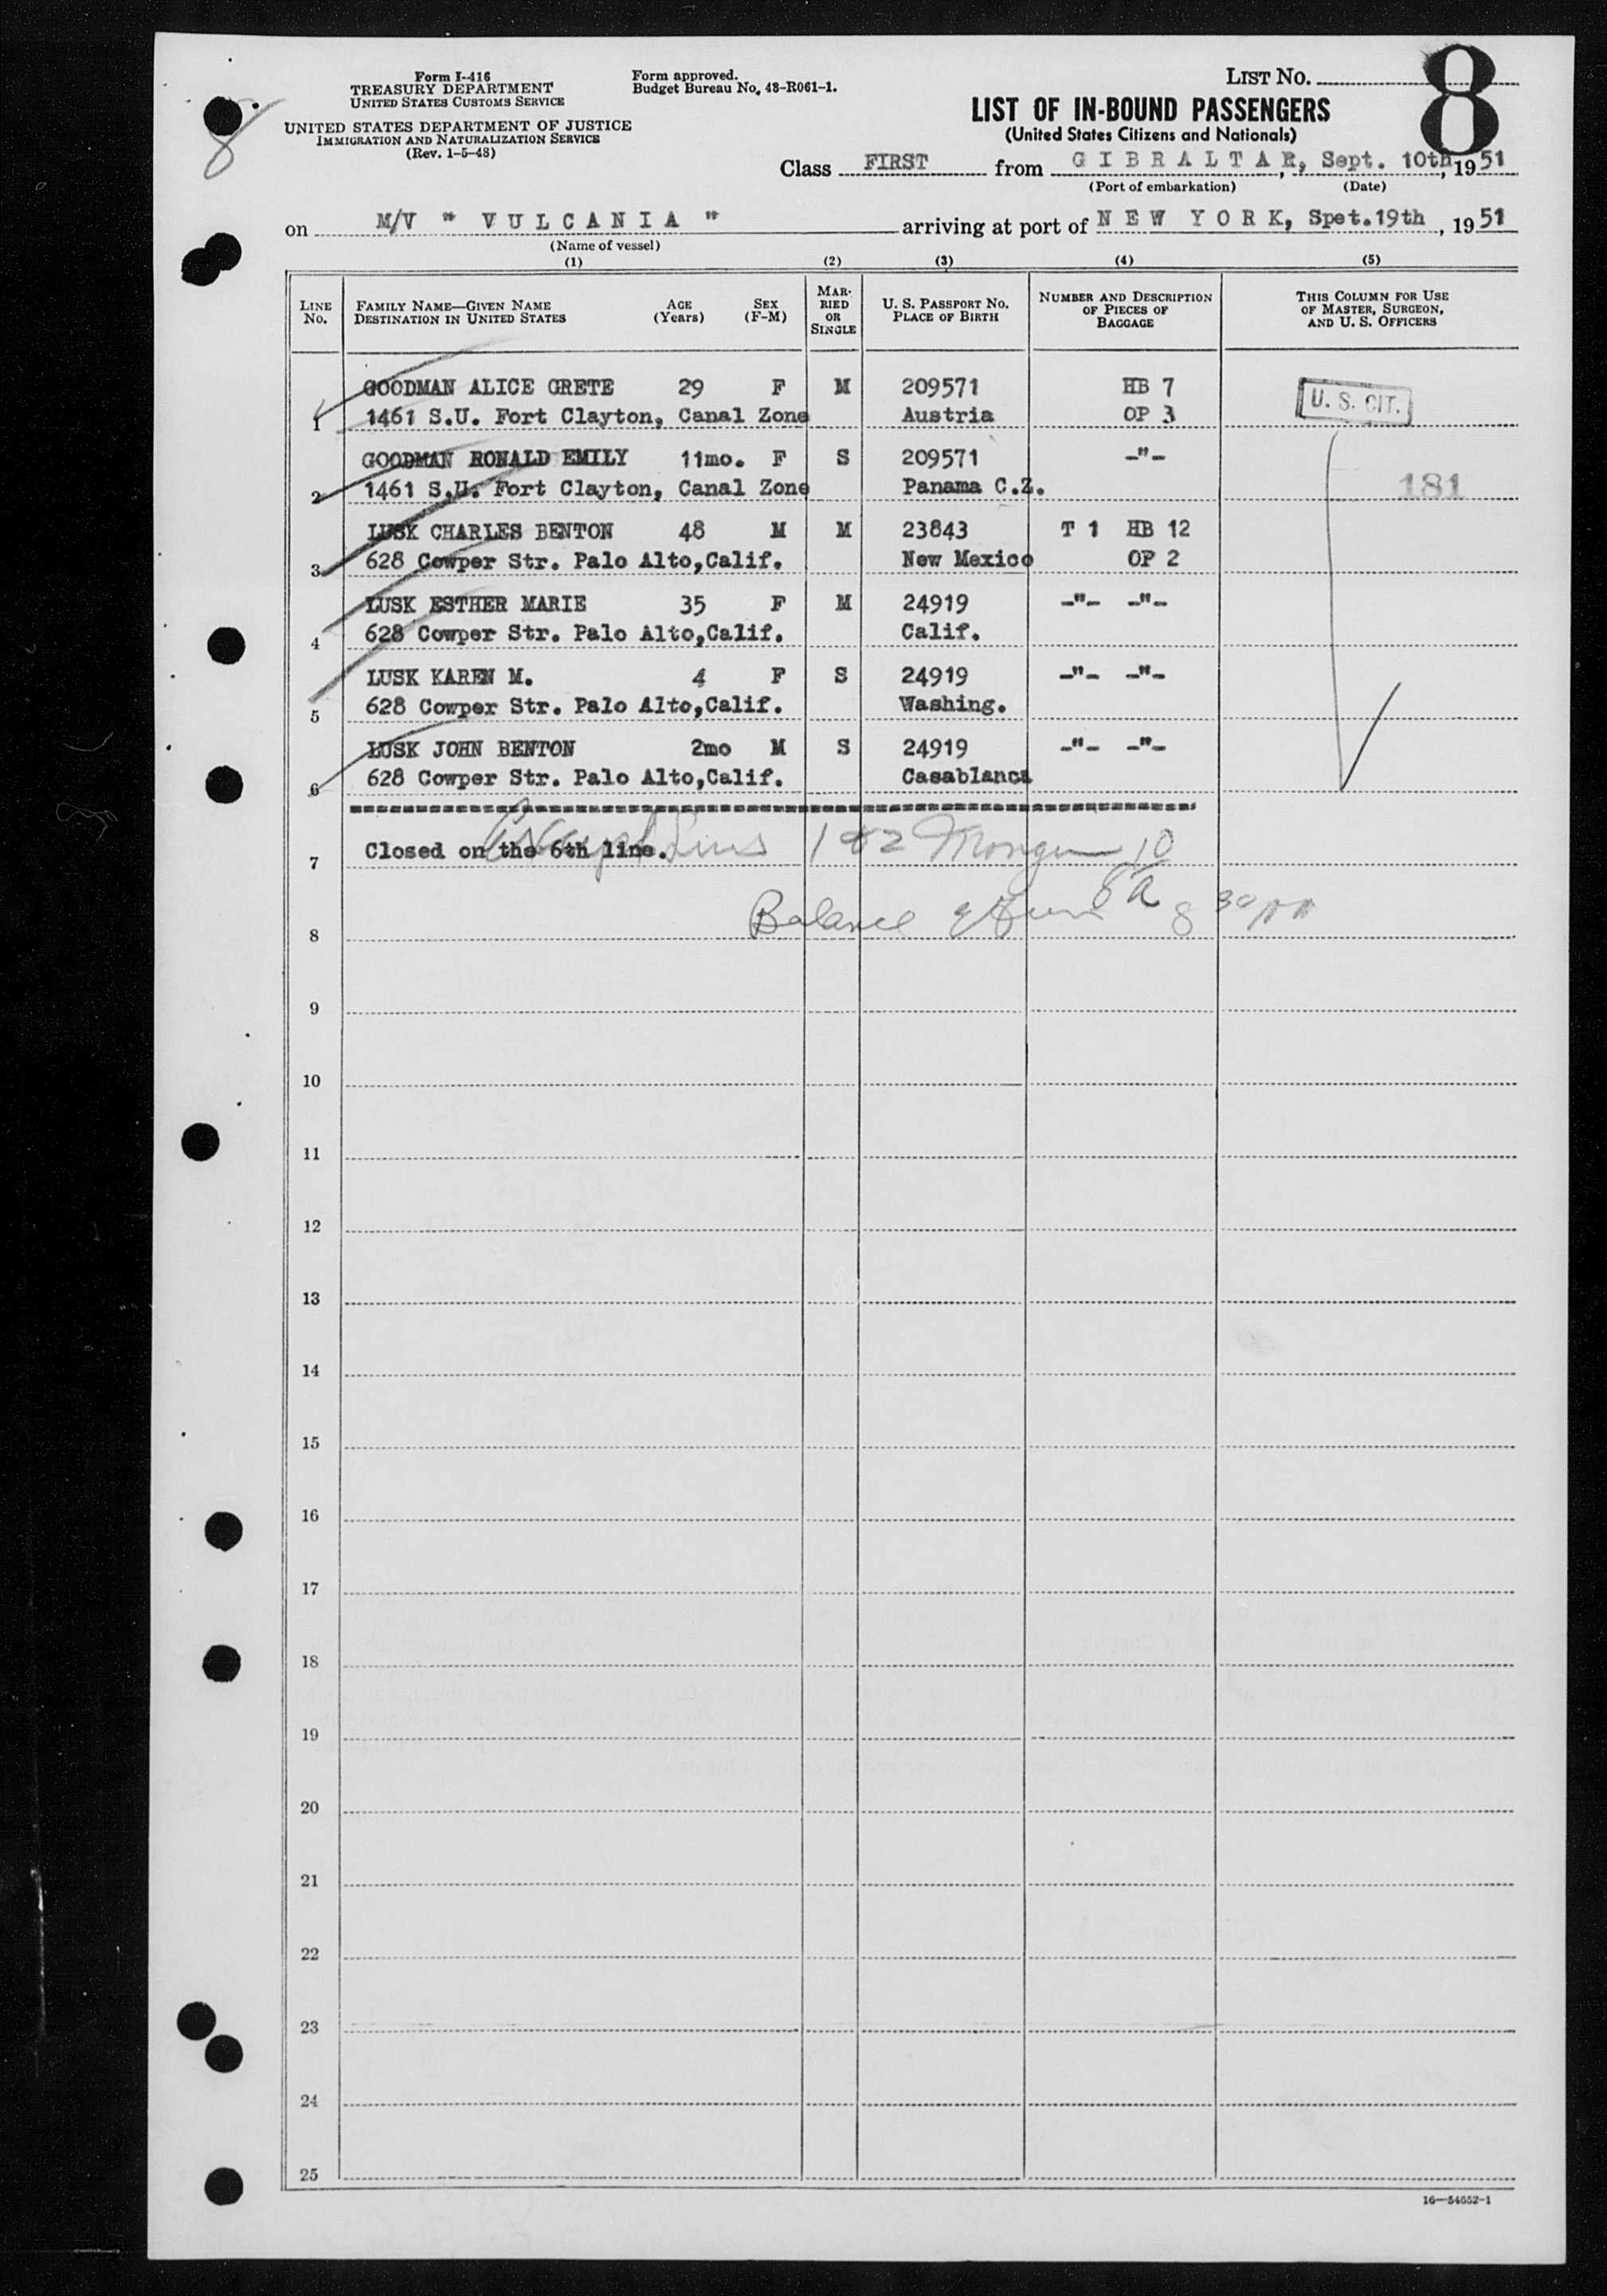 8
Form I-416
TREASURY DEPARTMENT
UNITED STATES CUSTOMS SERVICE
UNITED STATES DEPARTMENT OF JUSTICE
IMMIGRATION AND NATURALIZATION SERVICE
(Rev. 1-5-48)
Form approved.
Budget Bureau No. 48-R061-1.
LIST No. 8
LIST OF IN-BOUND PASSENGERS
(United States Citizens and Nationals)
Class FIRST from GIBRALTAR, Sept. 10th, 1951
(Port of embarkation) (Date)
on M/V " VULCANIA " arriving at port of NEW YORK, Spet.19th, 1951
(Name of vessel)
(1) (2) (3) (4) (5)
LINE No.
FAMILY NAME—GIVEN NAME
DESTINATION IN UNITED STATES
AGE (Years)
SEX (F-M)
MARRIED OR SINGLE
U. S. PASSPORT No.
PLACE OF BIRTH
NUMBER AND DESCRIPTION OF PIECES OF BAGGAGE
THIS COLUMN FOR USE OF MASTER, SURGEON, AND U. S. OFFICERS
GOODMAN ALICE GRETE 29 F M 209571 HB 7
1 1461 S.U. Fort Clayton, Canal Zone Austria OP 3 U. S. CIT.
GOODMAN RONALD EMILY 11mo. F S 209571 -"-
2 1461 S.U. Fort Clayton, Canal Zone Panama C.Z. 181
LUSK CHARLES BENTON 48 M M 23843 T 1 HB 12
3 628 Cowper Str. Palo Alto,Calif. New Mexico OP 2
LUSK ESTHER MARIE 35 F M 24919 -"- -"-
4 628 Cowper Str. Palo Alto,Calif. Calif.
LUSK KAREN M. 4 F S 24919 -"- -"-
5 628 Cowper Str. Palo Alto,Calif. Washing.
LUSK JOHN BENTON 2mo M S 24919 -"- -"-
6 628 Cowper Str. Palo Alto,Calif. Casablanca
7 Closed on the 6th line. 1 & 2
8 Balance 8 30
9
10
11
12
13
14
15
16
17
18
19
20
21
22
23
24
25
16—54652-1